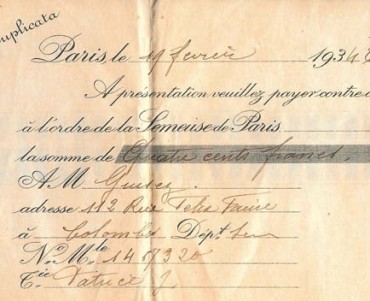 Duplicata
Paris, le 19 février 1934
A présentation veuillez payer contre
à l'ordre de la Semeuse de Paris
la somme de Quatre cents francs.
A M. 
adresse 112 Rue Felix Faure
à Colombes Dép.t Seine
N.o M.le 148320
C.ie Patrice J.